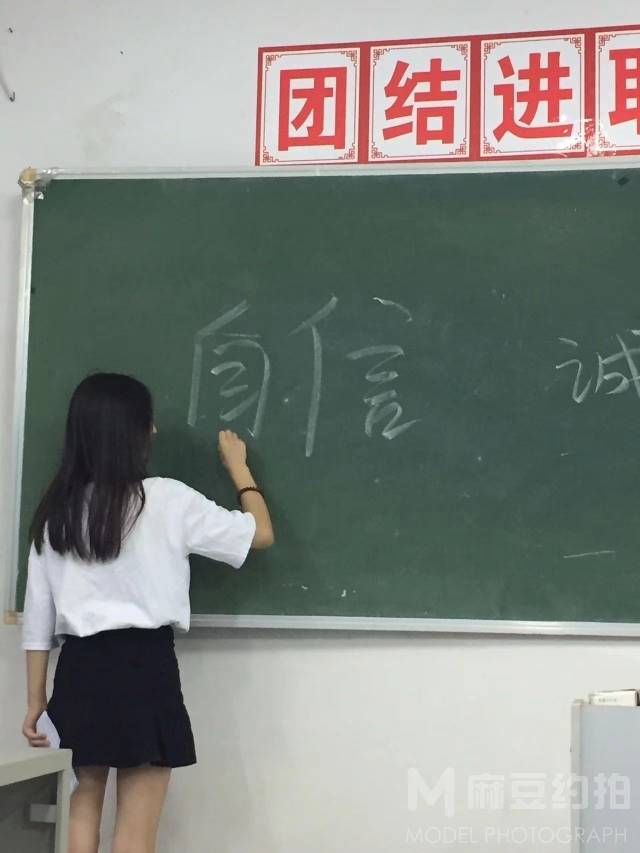 团结进取
自信 诚
M 麻豆约拍
MODEL PHOTOGRAPH